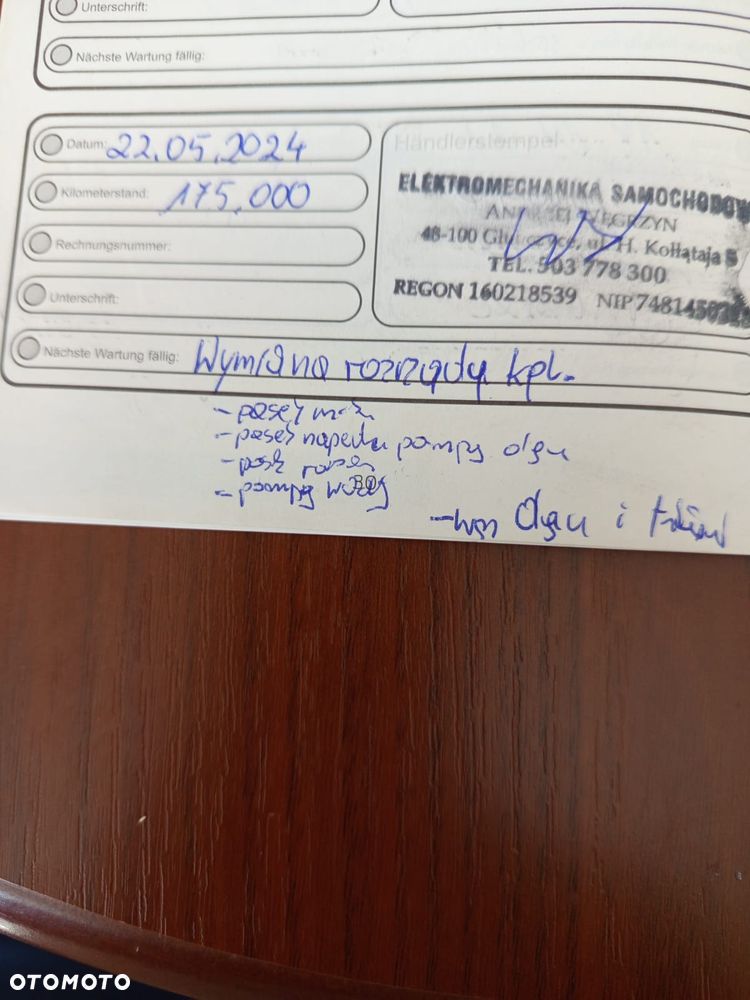 Unterschrift:
Nächste Wartung fällig:
Datum: 22.05.2024
Kilometerstand: 175.000
Rechnungsnummer:
Unterschrift:
Händlerstempel
ELEKTROMECHANIKA SAMOCHODOW
ANDRZEJ WĘGRZYN
48-100 Głubczyce, ul. H. Kołłątaja 5
TEL. 503 778 300
REGON 160218539 NIP 748145
Nächste Wartung fällig: Wymiana rozrządu kpl.
- pasek
- pasek napędu pompy oleju
- pasek
- pompy wody
- wym Oleju i filtrów
OTOMOTO